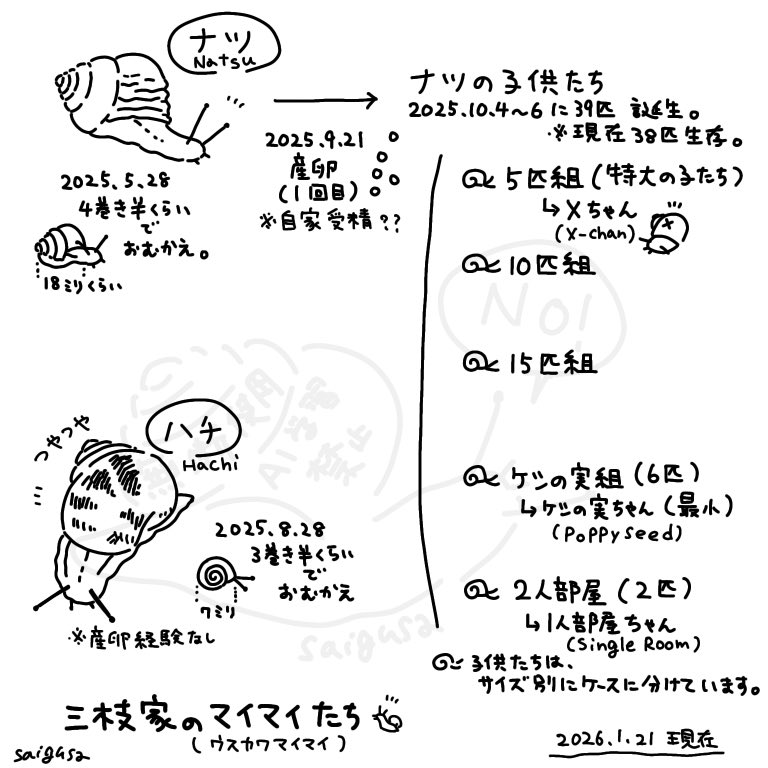 ナツ
Natsu
2025.5.28
4巻き半くらい
で
おむかえ。
18ミリくらい
2025.9.21
産卵
(1回目)
※自家受精??
ナツの子供たち
2025.10.4〜6に39匹 誕生。
※現在38匹生存。
5匹組(特大の子たち)
↳Xちゃん
(X-chan)
x
10匹組
15匹組
ケシの実組(6匹)
↳ケシの実ちゃん(最小)
(Poppyseed)
2人部屋(2匹)
↳1人部屋ちゃん
(Single Room)
子供たちは、
サイズ別にケースに分けています。
つやつや
ハチ
Hachi
2025.8.28
3巻き半くらい
で
おむかえ
7ミリ
※産卵経験なし
NO!
無断使用
AI学習
禁止
saigusa
三枝家のマイマイたち
(ウスカワマイマイ)
saigusa
2026.1.21 現在